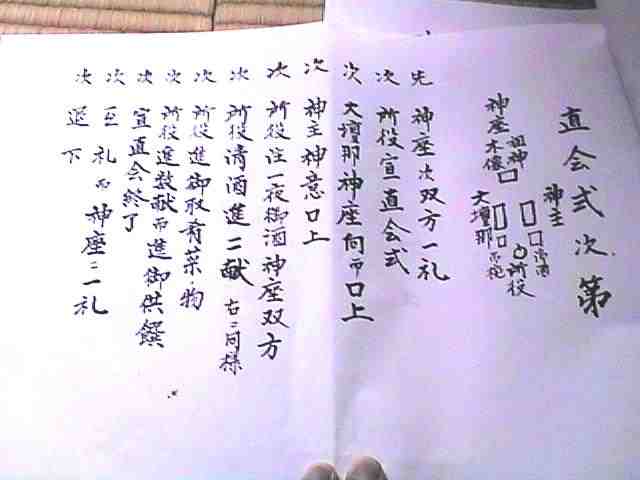 直会式次第
神主
清酒
所役
神座
祖神
木像
大壇那
先 神座次双方一礼
次 所役宣直会式
次 大壇那神座向而口上
次 神主神意口上
次 所役注一夜御酒神座双方
次 所役清酒進二献 右二同様
次 所役進御取肴菜物
次 所役進数献而進御供饌
次 宣直会終了
次 互礼而神座ニ一礼
次 退下